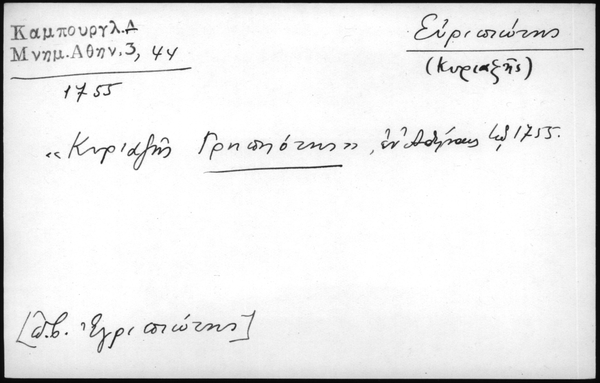 Καμπουργλ.Δ
Μνημ.Αθην.3, 44
1755
Εὐριπιώτης
(Κυριαζῆς)
«Κυριαζῆς Γρηπιότης», ἐν Ἀθήναις τῷ 1755.
[π.β. Ἐγριπιώτης]